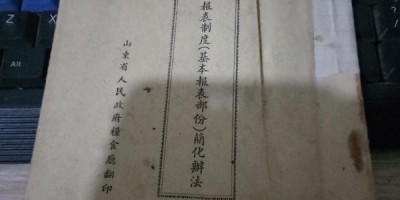 报表制度(基本报表部份)簡化辦法
山東省人民政府糧食廳翻印
Alt